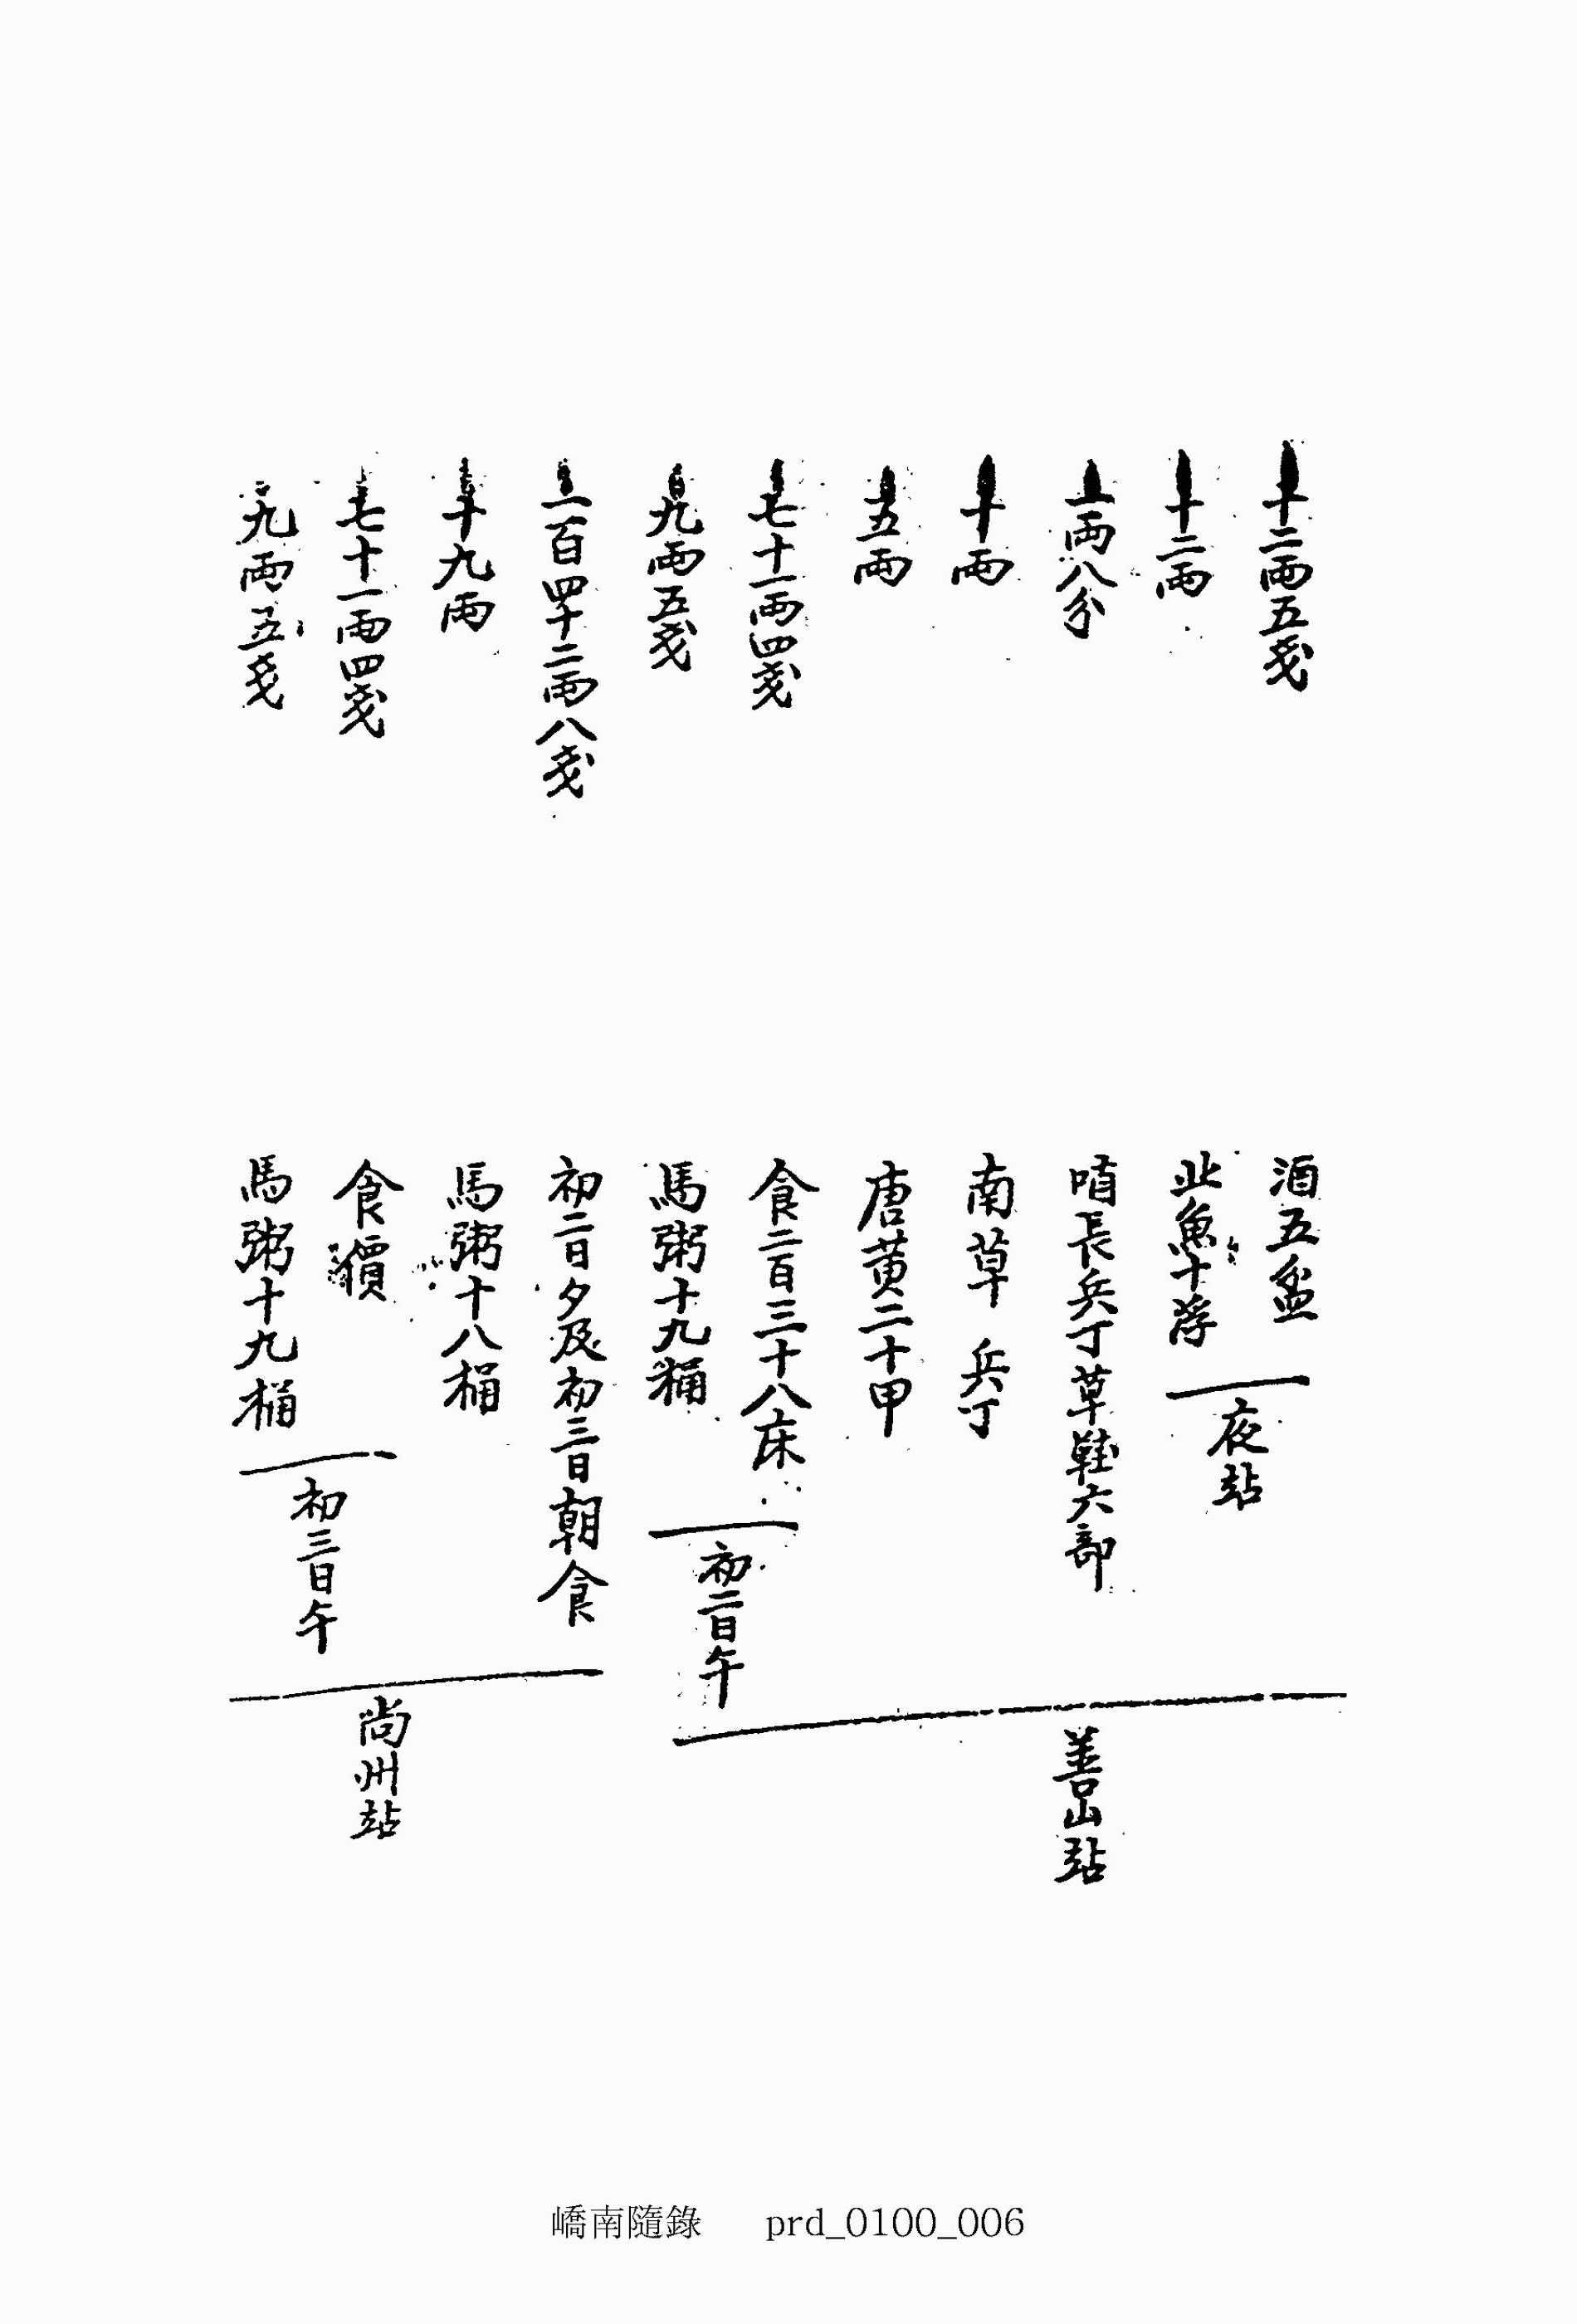 十二兩五戔
十二兩
一兩八分
十兩
五兩
七十一兩四戔
九兩五戔
一百四十二兩八戔
十九兩
七十一兩四戔
九兩五戔
酒五盆
北魚十浮
夜站
哨長兵丁草鞋六部
南草 兵丁
唐黃二十甲
食二百三十八床
馬粥十九桶
初二日午
善山站
初二日夕及初三日朝食
馬粥十八桶
食價
馬粥十九桶
初三日午
尙州站
嶠南隨錄 prd_0100_006